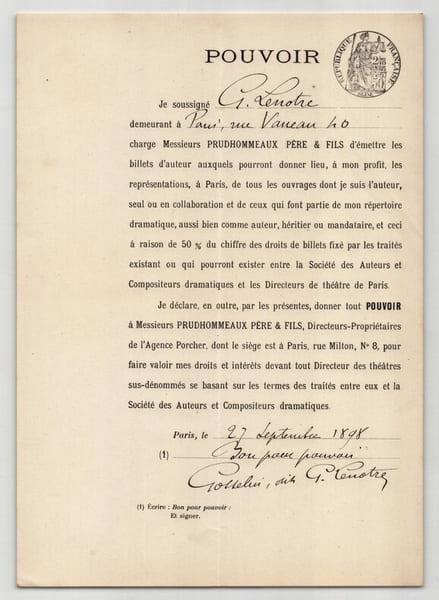 POUVOIR
RÉPUBLIQUE FRANÇAISE
Je soussigné G. Lenotre
demeurant à Paris, rue Vaneau 40
charge Messieurs PRUDHOMMEAUX PÈRE & FILS d'émettre les
billets d'auteur auxquels pourront donner lieu, à mon profit, les
représentations, à Paris, de tous les ouvrages dont je suis l'auteur,
seul ou en collaboration et de ceux qui font partie de mon répertoire
dramatique, aussi bien comme auteur, héritier ou mandataire, et ceci
à raison de 50 % du chiffre des droits de billets fixé par les traités
existant ou qui pourront exister entre la Société des Auteurs et
Compositeurs dramatiques et les Directeurs de théâtre de Paris.
Je déclare, en outre, par les présentes, donner tout POUVOIR
à Messieurs PRUDHOMMEAUX PÈRE & FILS, Directeurs-Propriétaires
de l'Agence Porcher, dont le siège est à Paris, rue Milton, N° 8, pour
faire valoir mes droits et intérêts devant tout Directeur des théâtres
sus-dénommés se basant sur les termes des traités entre eux et la
Société des Auteurs et Compositeurs dramatiques.
Paris, le 27 Septembre 1898
(1) Bon pour pouvoir
Gosselin, dit G. Lenotre
(1) Écrire : Bon pour pouvoir :
Et signer.